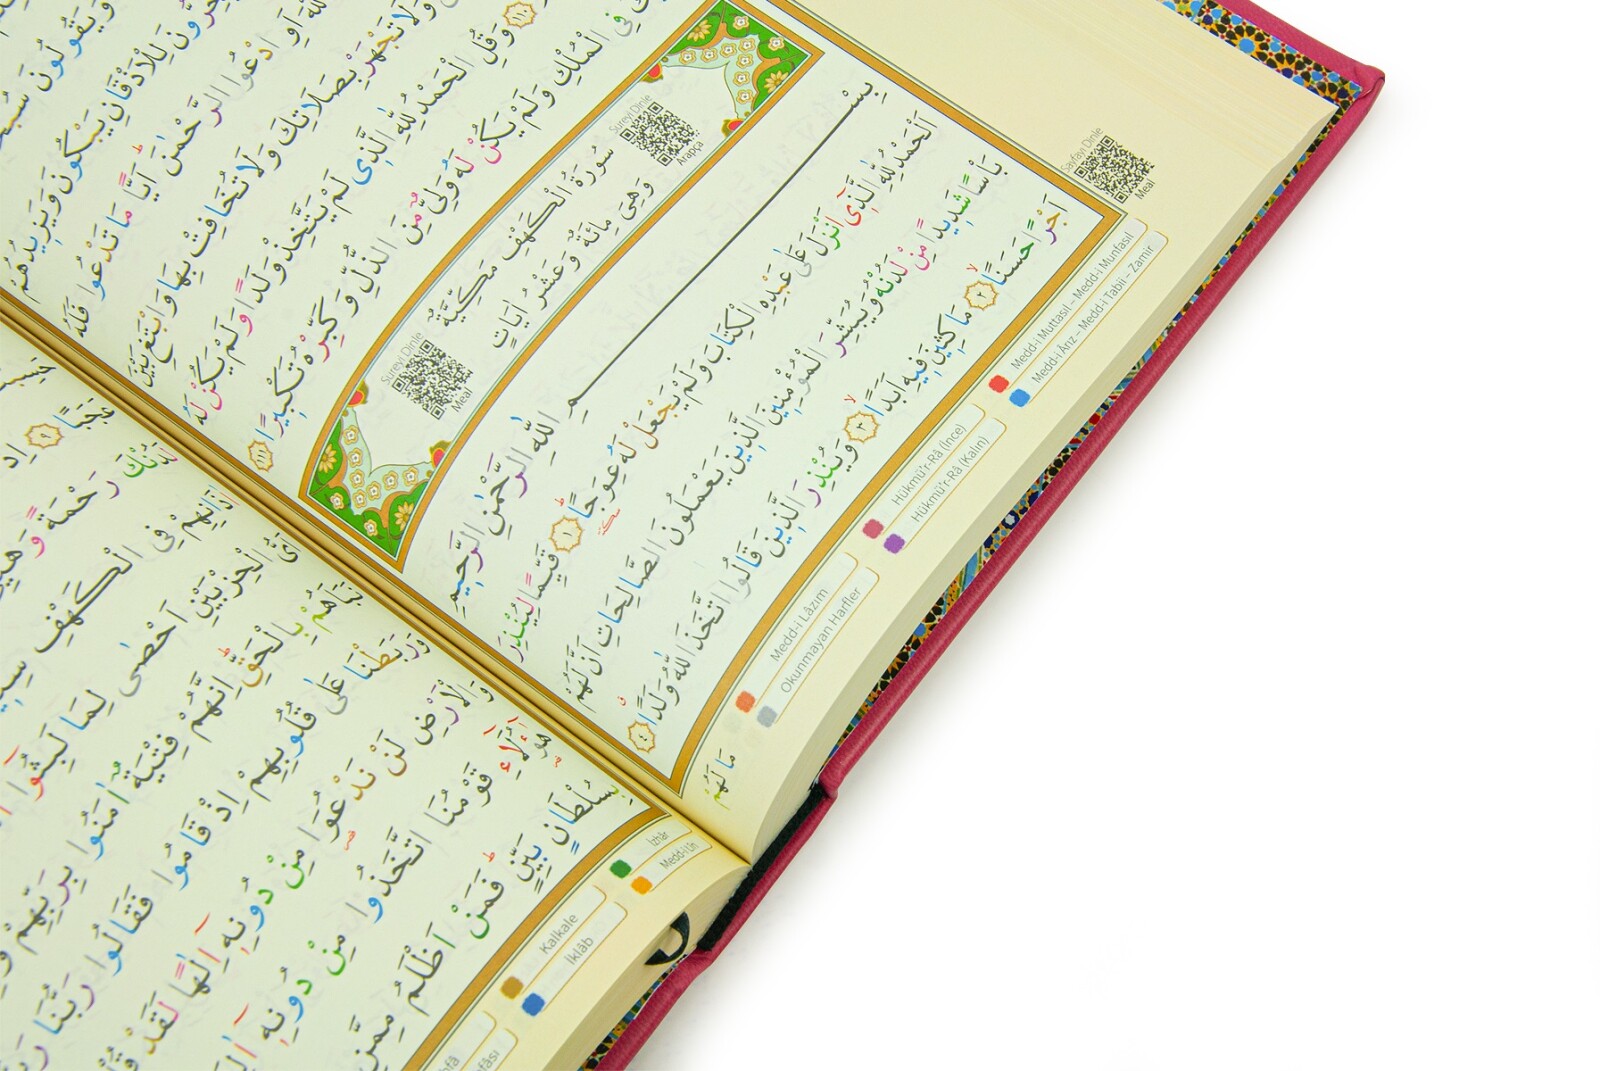 وَيَقُولُونَ
لِلْاَذْقَانِ يَبْكُونَ وَيَزِيدُهُمْ
ادْعُوا الرَّحْمٰنَ اَيًّا مَا تَدْعُوا فَلَهُ
وَلَا تَجْهَرْ بِصَلَاتِكَ وَلَا تُخَافِتْ بِهَا وَابْتَغِ بَيْنَ
﴿١١٠﴾ وَقُلِ الْحَمْدُ لِلّٰهِ الَّذِى لَمْ يَتَّخِذْ وَلَدًا وَلَمْ يَكُنْ لَهُ
فِى الْمُلْكِ وَلَمْ يَكُنْ لَهُ وَلِىٌّ مِنَ الذُّلِّ وَكَبِّرْهُ تَكْبِيرًا ﴿١١١﴾
Sureyi Dinle
Arapça
سُورَةُ الْكَهْفِ مَكِّيَّةٌ
وَهِىَ مِائَةٌ وَعَشْرُ اٰيَاتٍ
Sureyi Dinle
Meal
بِسْمِ اللّٰهِ الرَّحْمٰنِ الرَّحِيمِ
اَلْحَمْدُ لِلّٰهِ الَّذِٓى اَنْزَلَ عَلٰى عَبْدِهِ الْكِتَابَ وَلَمْ يَجْعَلْ لَهُ عِوَجًا ﴿١﴾ قَيِّمًا لِيُنْذِرَ
بَأْسًا شَدِيدًا مِنْ لَدُنْهُ وَيُبَشِّرَ الْمُؤْمِنِينَ الَّذِينَ يَعْمَلُونَ الصَّالِحَاتِ اَنَّ لَهُمْ
اَجْرًا حَسَنًا ﴿٢﴾ مَاكِثِينَ فِيهِ اَبَدًا ﴿٣﴾ وَيُنْذِرَ الَّذِينَ قَالُوا اتَّخَذَ اللّٰهُ وَلَدًا ﴿٤﴾
مَا لَهُمْ
Sayfayı Dinle
Meal
Medd-i Muttasıl – Medd-i Munfasıl
Medd-i Ârız – Medd-i Tabii – Zamir
Hükmü'r-Râ (İnce)
Hükmü'r-Râ (Kalın)
Medd-i Lâzım
Okunmayan Harfler
عَجَبًا ﴿٩﴾ اِذْ
رَحْمَةً وَهَيِّئْ
فِى الْكَهْفِ سِنِينَ
اَىُّ الْحِزْبَيْنِ اَحْصٰى لِمَا لَبِثُٓوا
بِالْحَقِّ اِنَّهُمْ فِتْيَةٌ اٰمَنُوا بِرَبِّهِمْ
وَرَبَطْنَا عَلٰى قُلُوبِهِمْ اِذْ قَامُوا فَقَالُوا رَبُّنَا
وَالْاَرْضِ لَنْ نَدْعُوَا مِنْ دُونِهِٓ اِلٰهًا لَقَدْ
هٰٓؤُلَٓاءِ قَوْمُنَا اتَّخَذُوا مِنْ دُونِهِٓ
بِسُلْطَانٍ بَيِّنٍ فَمَنْ اَظْلَمُ مِمَّنِ
İzhâr
Medd-i Lîn
Kalkale
İklâb